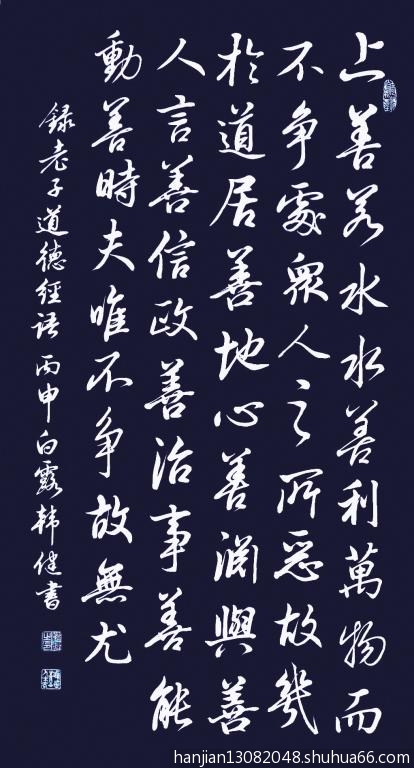 上善若水水善利萬物而
不争處衆人之所惡故幾
於道居善地心善淵與善
人言善信政善治事善能
動善時夫唯不争故無尤
録老子道德經語丙申白露韩健書
hanjian13082048.shuhua66.com